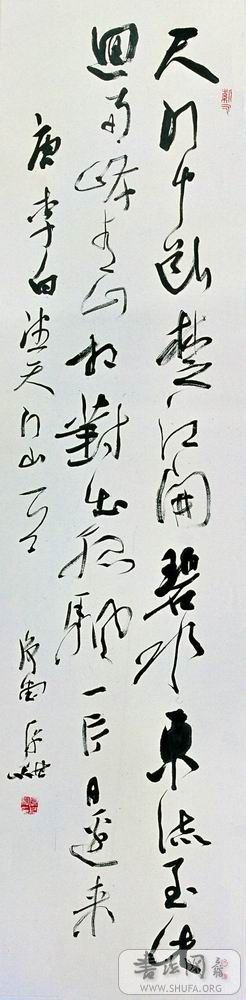 天门中断楚江開碧水東流至此
迴两岸青山相對出孤帆一片日邊来
唐李白望天门山一首
书法网
WWW.SHUFA.ORG